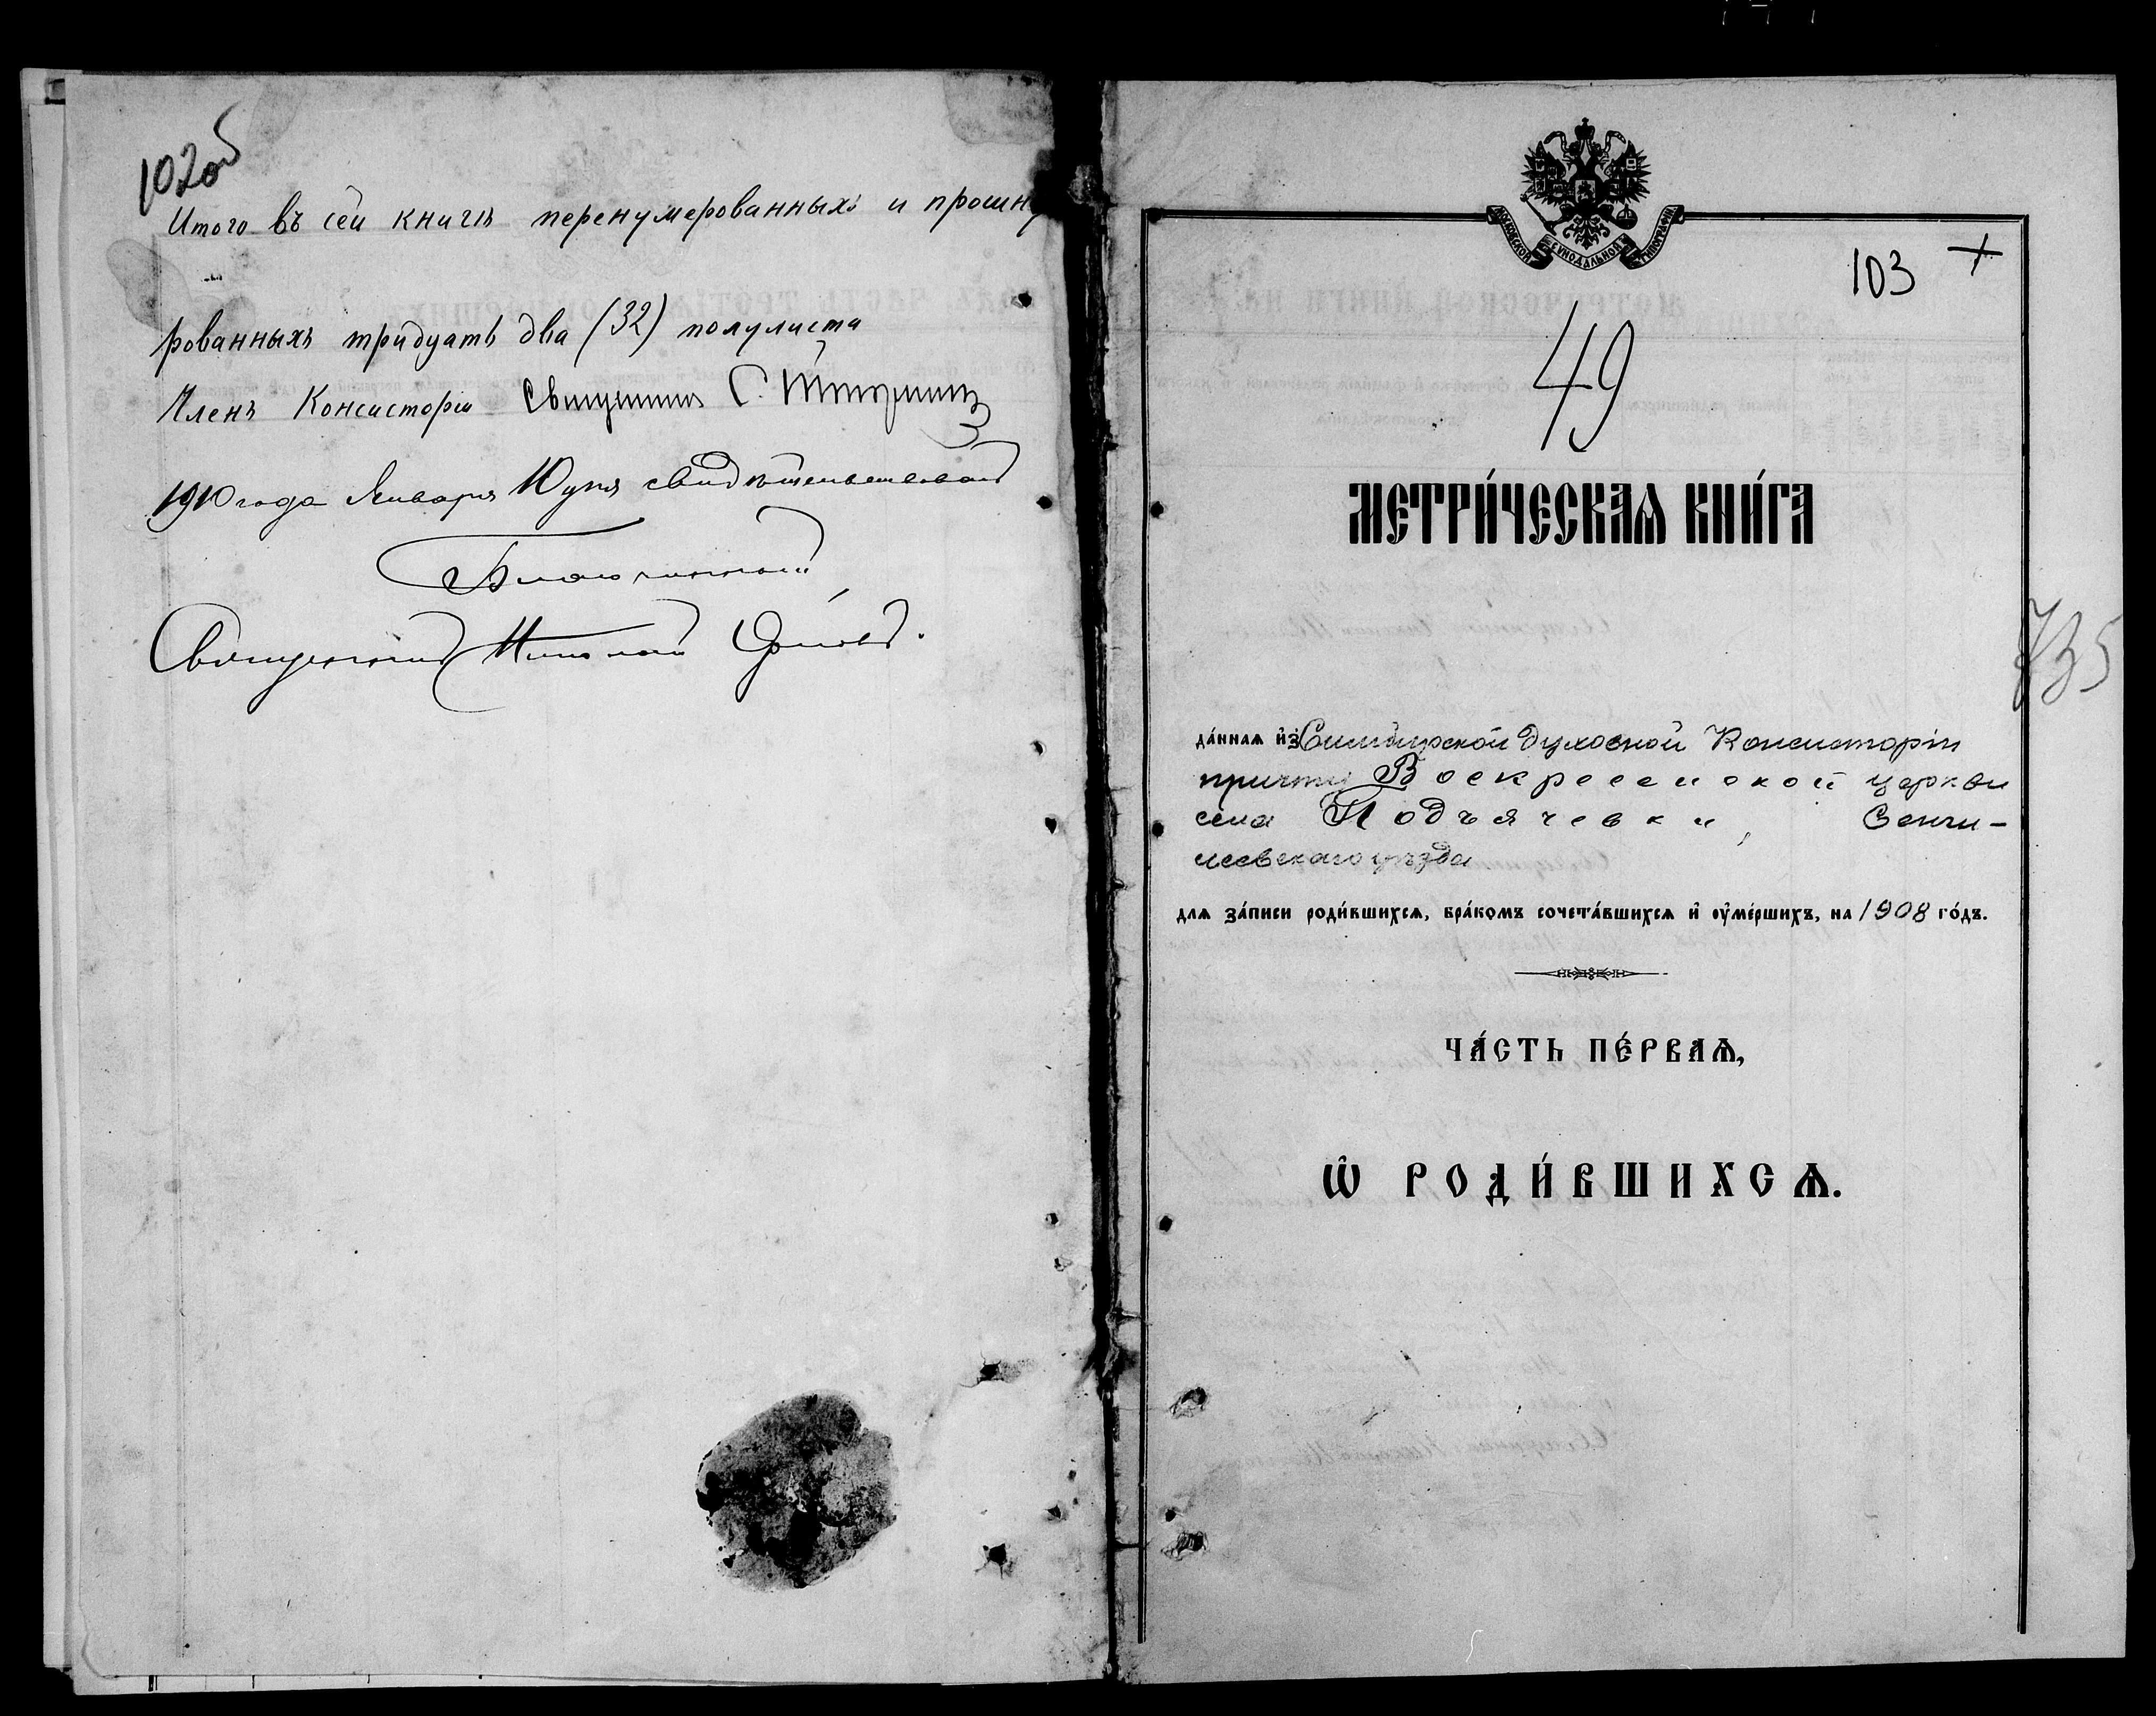 102об
Итого въ сей книгѣ перенумерованныхъ и прошну
рованныхъ тридцать два (32) полулиста
Членъ Консисторіи Священникъ С.
1910 года Января 10 дня свидѣтельствовалъ
Благочинный
Священникъ Николай
МОСКОВСКОЙ СѴНОДАЛЬНОЙ ТИПОГРАФІИ
103 +
49
МЕТРИ́ЧЕСКАѦ КНИ́ГА
735
да́ннаѧ и҆зъ Симбирской Духовной Консисторіи
причту Воскресенской церкви
села Подъячевки, Сенги-
леевскаго уѣзда
длѧ за́писи роди́вшихсѧ, бра́комъ сочета́вшихсѧ и҆ ᲂу҆ме́ршихъ, на 1908 го́дъ.
ЧА́СТЬ ПЕ́РВАѦ,
Ѡ҆ РОДИ́ВШИХСѦ.